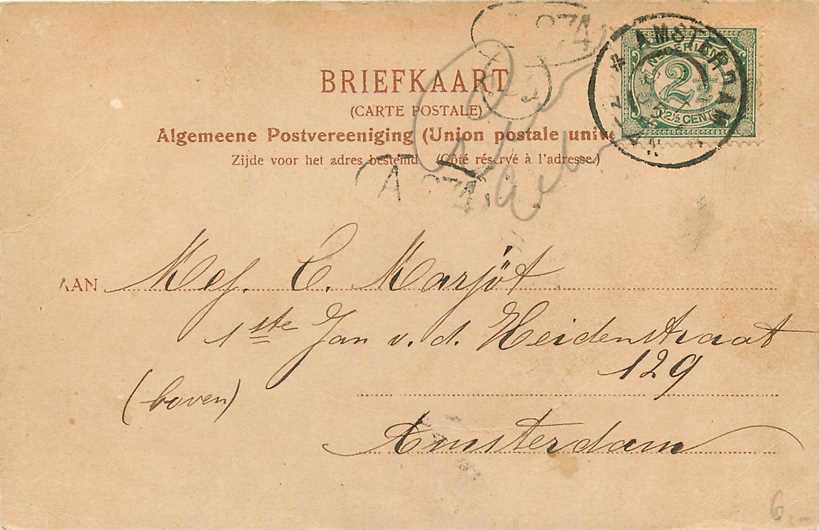 BRIEFKAART
(CARTE POSTALE)
Algemeene Postvereeniging (Union postale unive
Zijde voor het adres bestemd (Côté réservé à l'adresse.)
NEDERLAND
2½
2½ CENT
AMSTERDAM
A 274
AAN Mej. C. Marjôt
1ste Jan v. d. Heidenstraat
129
(boven)
Amsterdam
6.-